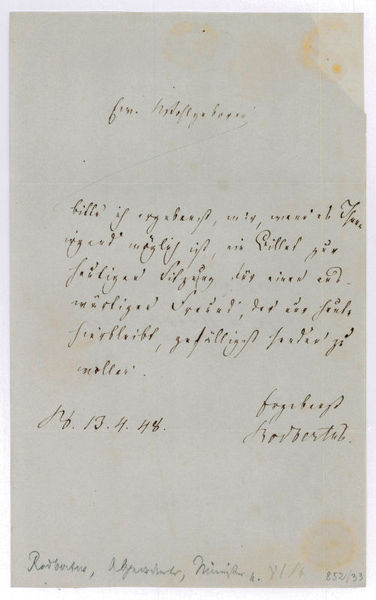 Ew. Wohlgeboren
bitte ich ergebenst, mir, wenn es Ihnen
irgend möglich ist, ein Billet zur
heutigen Sitzung für einen aus-
wärtigen Freund, der nur heute
hierbleibt, gefälligst senden zu
wollen.
Ergebenst
Rodbertus.
13.4.48.
Rodbertus, Abgeordneter, Minister
852/33